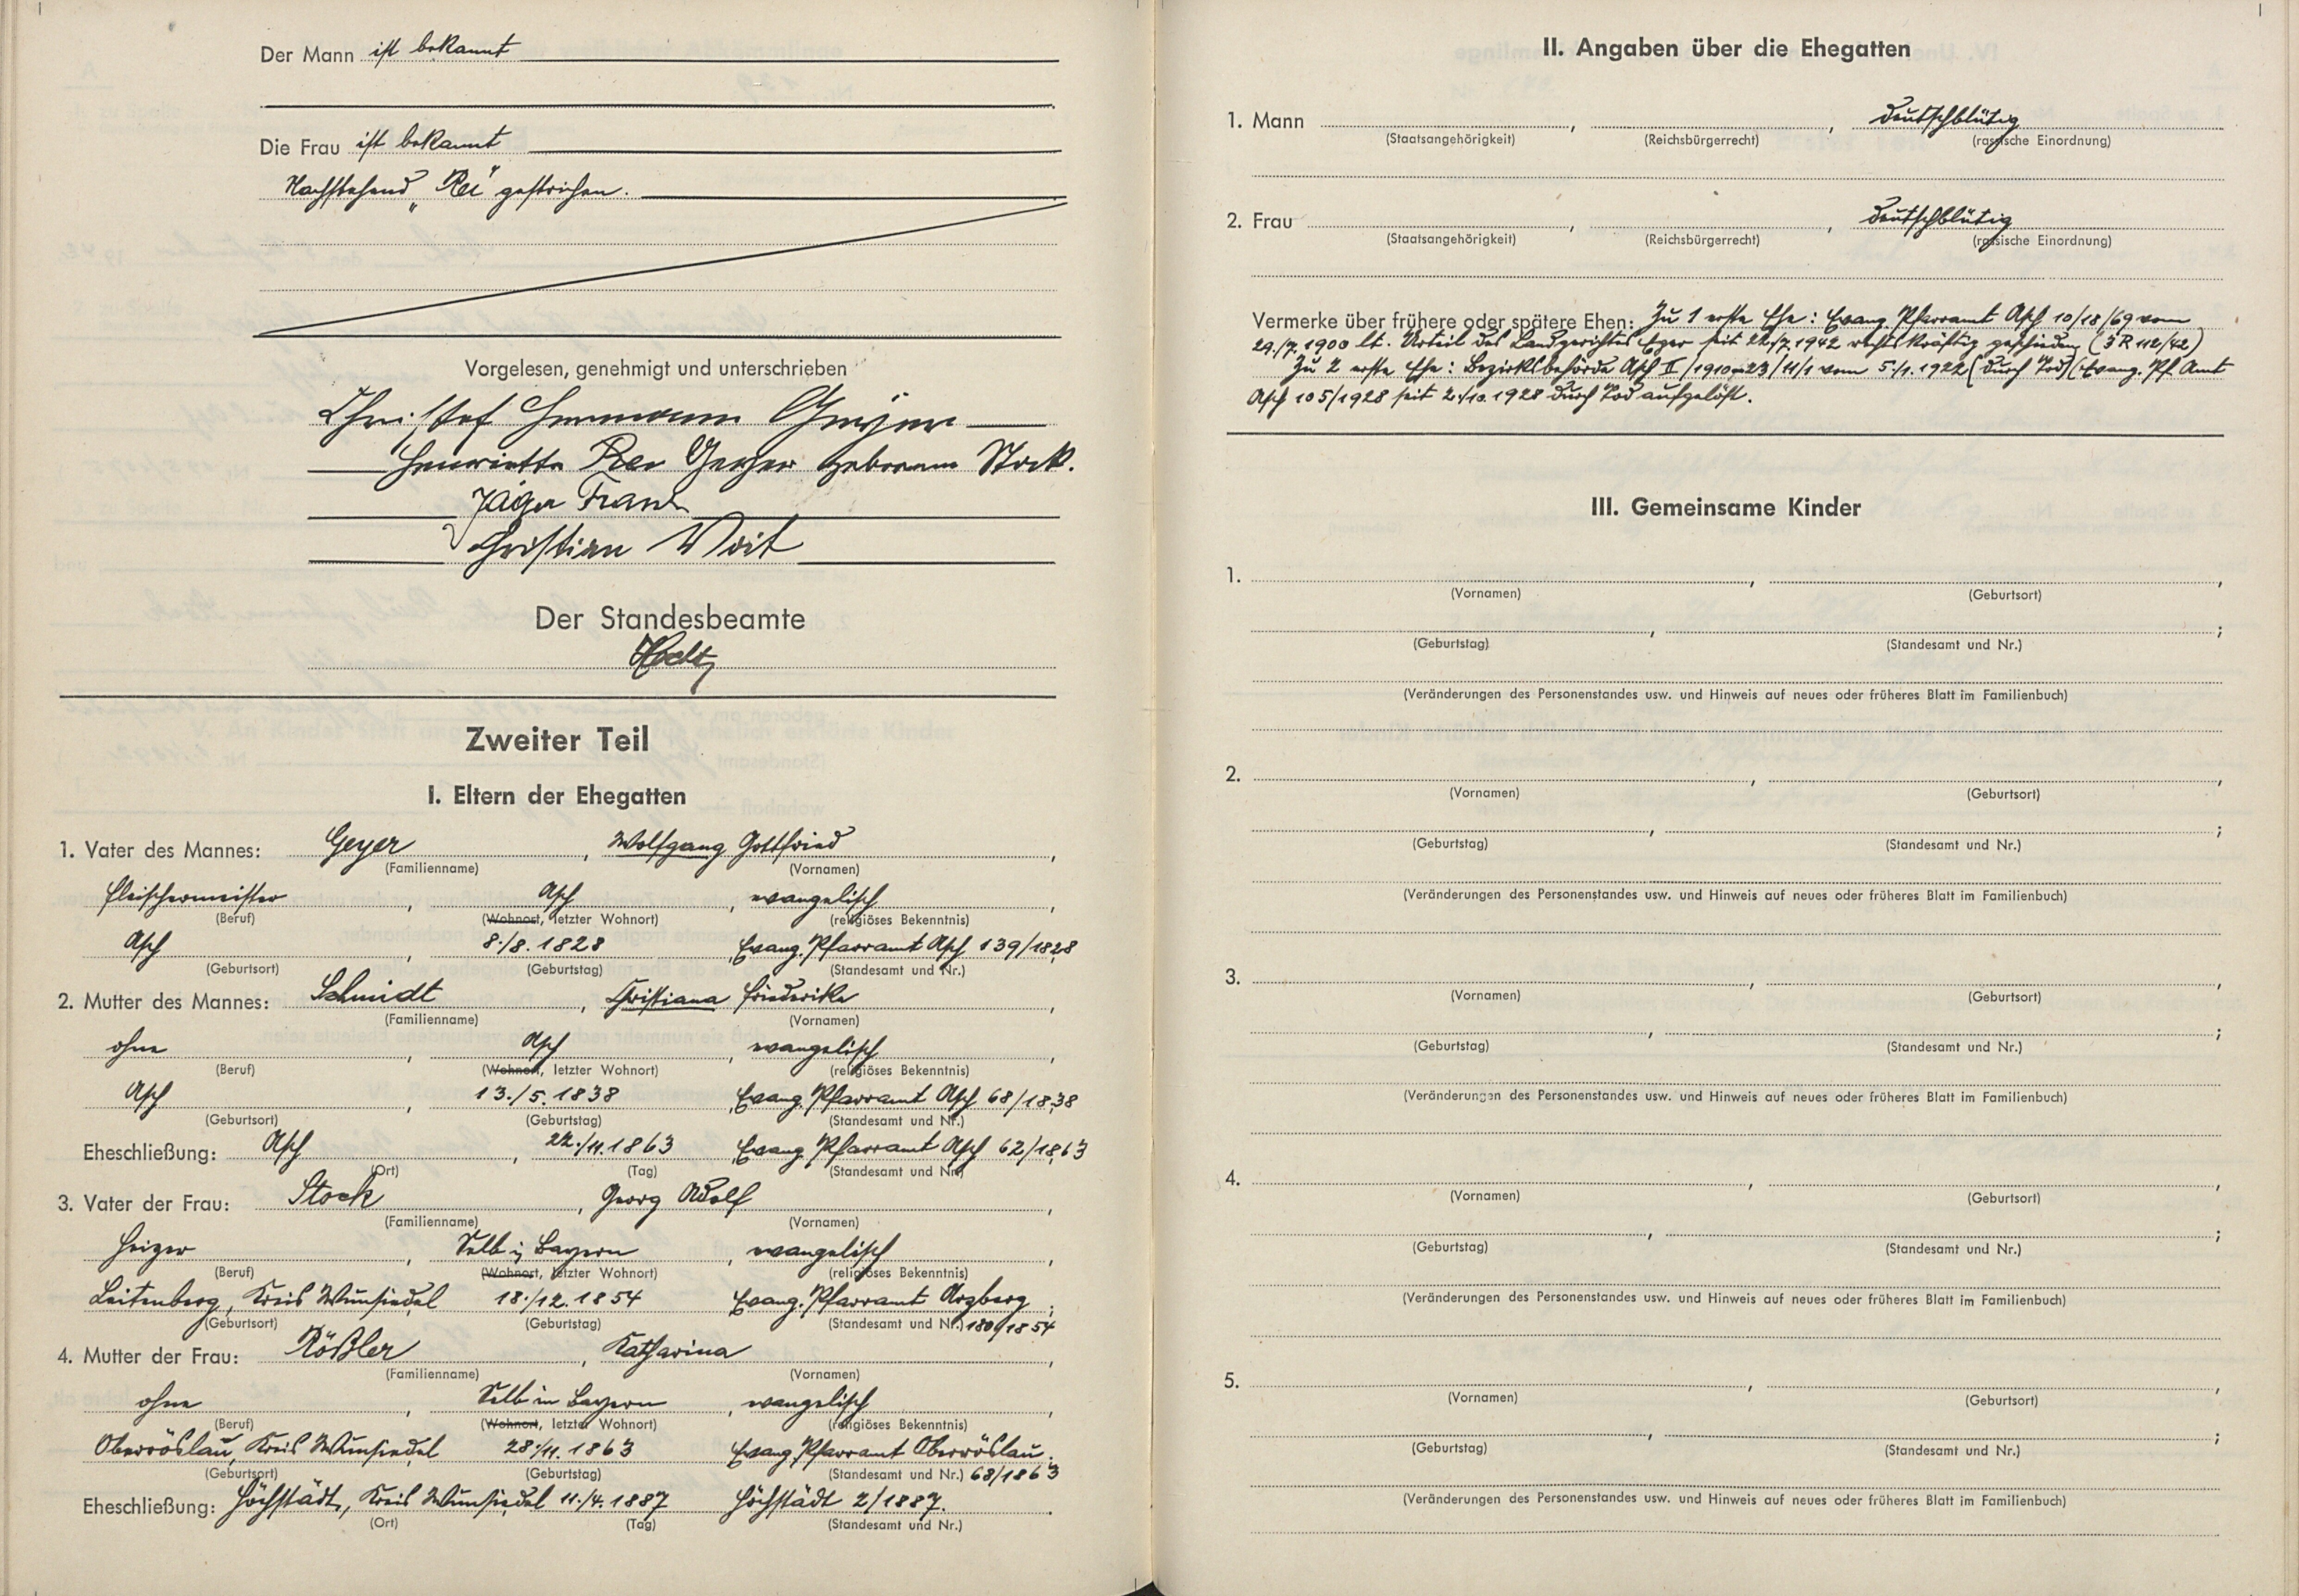 Der Mann ist bekannt
Die Frau ist bekannt
Nachstehend „Rei“ gestrichen.
Vorgelesen, genehmigt und unterschrieben
Christof Hermann Geyer
Henriette Rei Geyer geborene Stock.
Jäger Frank
Christian Voit
Der Standesbeamte
Zweiter Teil
I. Eltern der Ehegatten
1. Vater des Mannes: Geyer, Wolfgang Gottfried,
(Familienname) (Vornamen)
Fleischermeister, Asch, evangelisch,
(Beruf) (Wohnort, letzter Wohnort) (religiöses Bekenntnis)
Asch, 8./8. 1828, Evang. Pfarramt Asch 139/1828
(Geburtsort) (Geburtstag) (Standesamt und Nr.)
2. Mutter des Mannes: Schmidt, Christiana Friederike,
(Familienname) (Vornamen)
ohne, Asch, evangelisch,
(Beruf) (Wohnort, letzter Wohnort) (religiöses Bekenntnis)
Asch, 13./5. 1838, Evang. Pfarramt Asch 68/1838
(Geburtsort) (Geburtstag) (Standesamt und Nr.)
Eheschließung: Asch, 22./11. 1863, Evang. Pfarramt Asch 62/1863
(Ort) (Tag) (Standesamt und Nr.)
3. Vater der Frau: Stock, Georg Adolf,
(Familienname) (Vornamen)
Heizer, Selb i/ Bayern, evangelisch,
(Beruf) (Wohnort, letzter Wohnort) (religiöses Bekenntnis)
Leitenberg, Kreis Wunsiedel 18./12. 1854 Evang. Pfarramt Arzberg;
(Geburtsort) (Geburtstag) (Standesamt und Nr.) 180/1854
4. Mutter der Frau: Rößler, Katharina,
(Familienname) (Vornamen)
ohne, Selb in Bayern, evangelisch,
(Beruf) (Wohnort, letzter Wohnort) (religiöses Bekenntnis)
Oberröslau, Kreis Wunsiedel 28./11. 1863 Evang. Pfarramt Oberröslau.
(Geburtsort) (Geburtstag) (Standesamt und Nr.) 68/1863
Eheschließung: Höchstädt, Kreis Wunsiedel 11./4. 1887 Höchstädt 2/1887.
(Ort) (Tag) (Standesamt und Nr.)
II. Angaben über die Ehegatten
1. Mann , , deutschblütig
(Staatsangehörigkeit) (Reichsbürgerrecht) (rassische Einordnung)
2. Frau , , deutschblütig
(Staatsangehörigkeit) (Reichsbürgerrecht) (rassische Einordnung)
Vermerke über frühere oder spätere Ehen: Zu 1 erste Ehe: Evang. Pfarramt Asch 10/18/69 vom
29./7. 1900 lt. Urteil des Landgerichtes Eger seit 22./7. 1942 rechtskräftig geschieden (3 R 112/42)
Zu 2 erste Ehe: Bezirksbehörde Asch II/1910 23/11/1 vom 5./1. 1922 (durch Tod) (Evang. Pf. Amt
Asch 105/1928 seit 2./10. 1928 durch Tod aufgelöst.
III. Gemeinsame Kinder
1. , ,
(Vornamen) (Geburtsort)
, ;
(Geburtstag) (Standesamt und Nr.)
(Veränderungen des Personenstandes usw. und Hinweis auf neues oder früheres Blatt im Familienbuch)
2. , ,
(Vornamen) (Geburtsort)
, ;
(Geburtstag) (Standesamt und Nr.)
(Veränderungen des Personenstandes usw. und Hinweis auf neues oder früheres Blatt im Familienbuch)
3. , ,
(Vornamen) (Geburtsort)
, ;
(Geburtstag) (Standesamt und Nr.)
(Veränderungen des Personenstandes usw. und Hinweis auf neues oder früheres Blatt im Familienbuch)
4. , ,
(Vornamen) (Geburtsort)
, ;
(Geburtstag) (Standesamt und Nr.)
(Veränderungen des Personenstandes usw. und Hinweis auf neues oder früheres Blatt im Familienbuch)
5. , ,
(Vornamen) (Geburtsort)
, ;
(Geburtstag) (Standesamt und Nr.)
(Veränderungen des Personenstandes usw. und Hinweis auf neues oder früheres Blatt im Familienbuch)